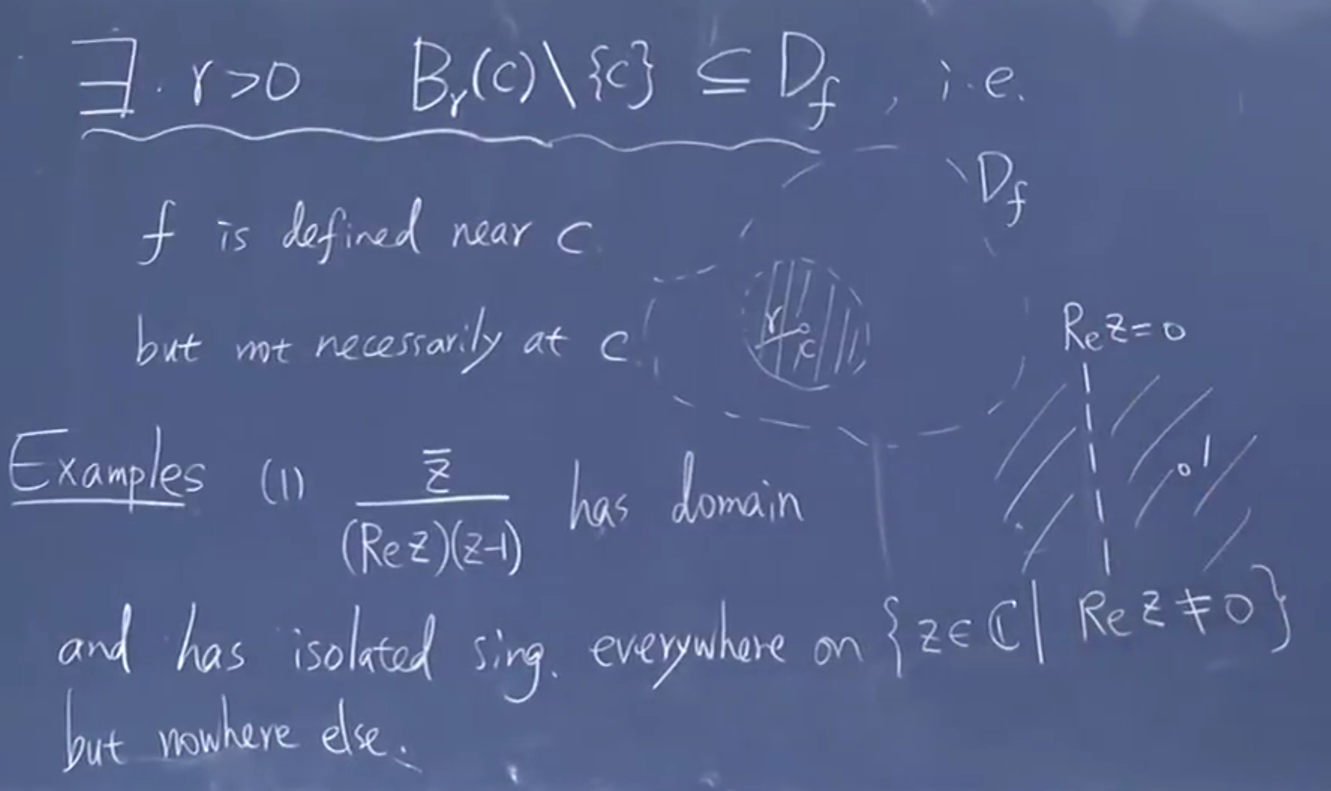 ∃ r>0 B_r(c)\{c} ⊆ D_f , i.e.
D_f
f is defined near c
but not necessarily at c
r c
Re z=0
1
Examples (1) z̄/((Re z)(z-1)) has domain
and has isolated sing. everywhere on {z∈ℂ| Re z≠0}
but nowhere else.